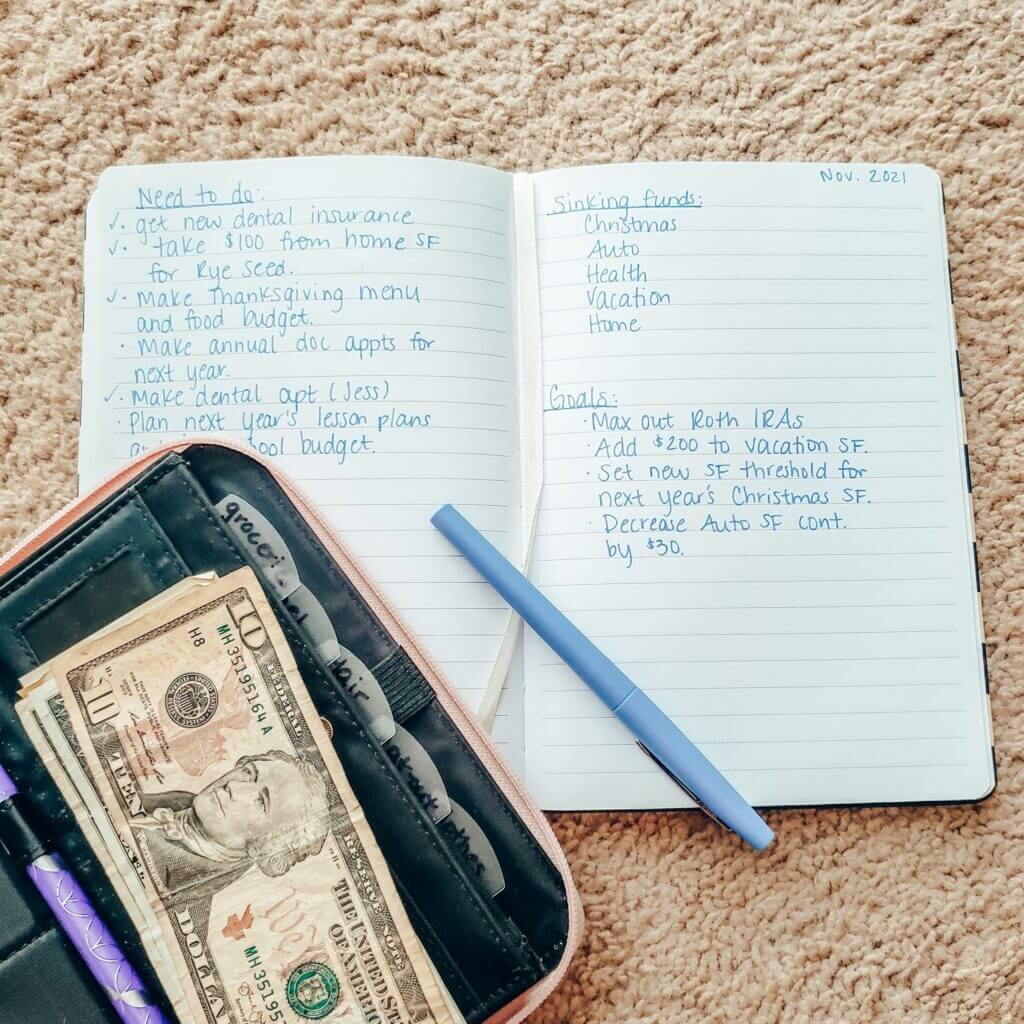 Need to do:
✓· get new dental insurance
✓· take $100 from home SF
for Rye seed.
✓· Make Thanksgiving menu
and food budget.
· Make annual doc appts for
next year.
✓· Make dental apt (Jess)
· Plan next year's lesson plans
budget.
Nov. 2021
Sinking funds:
Christmas
Auto
Health
Vacation
Home
Goals:
· Max out Roth IRAs
· Add $200 to vacation SF.
· Set new SF threshold for
next year's Christmas SF.
· Decrease Auto SF cont.
by $30.
Hair
10
H8
MH35195164A
10
FEDERAL RESERVE NOTE
THE UNITED STATES
OF AMERICA
We